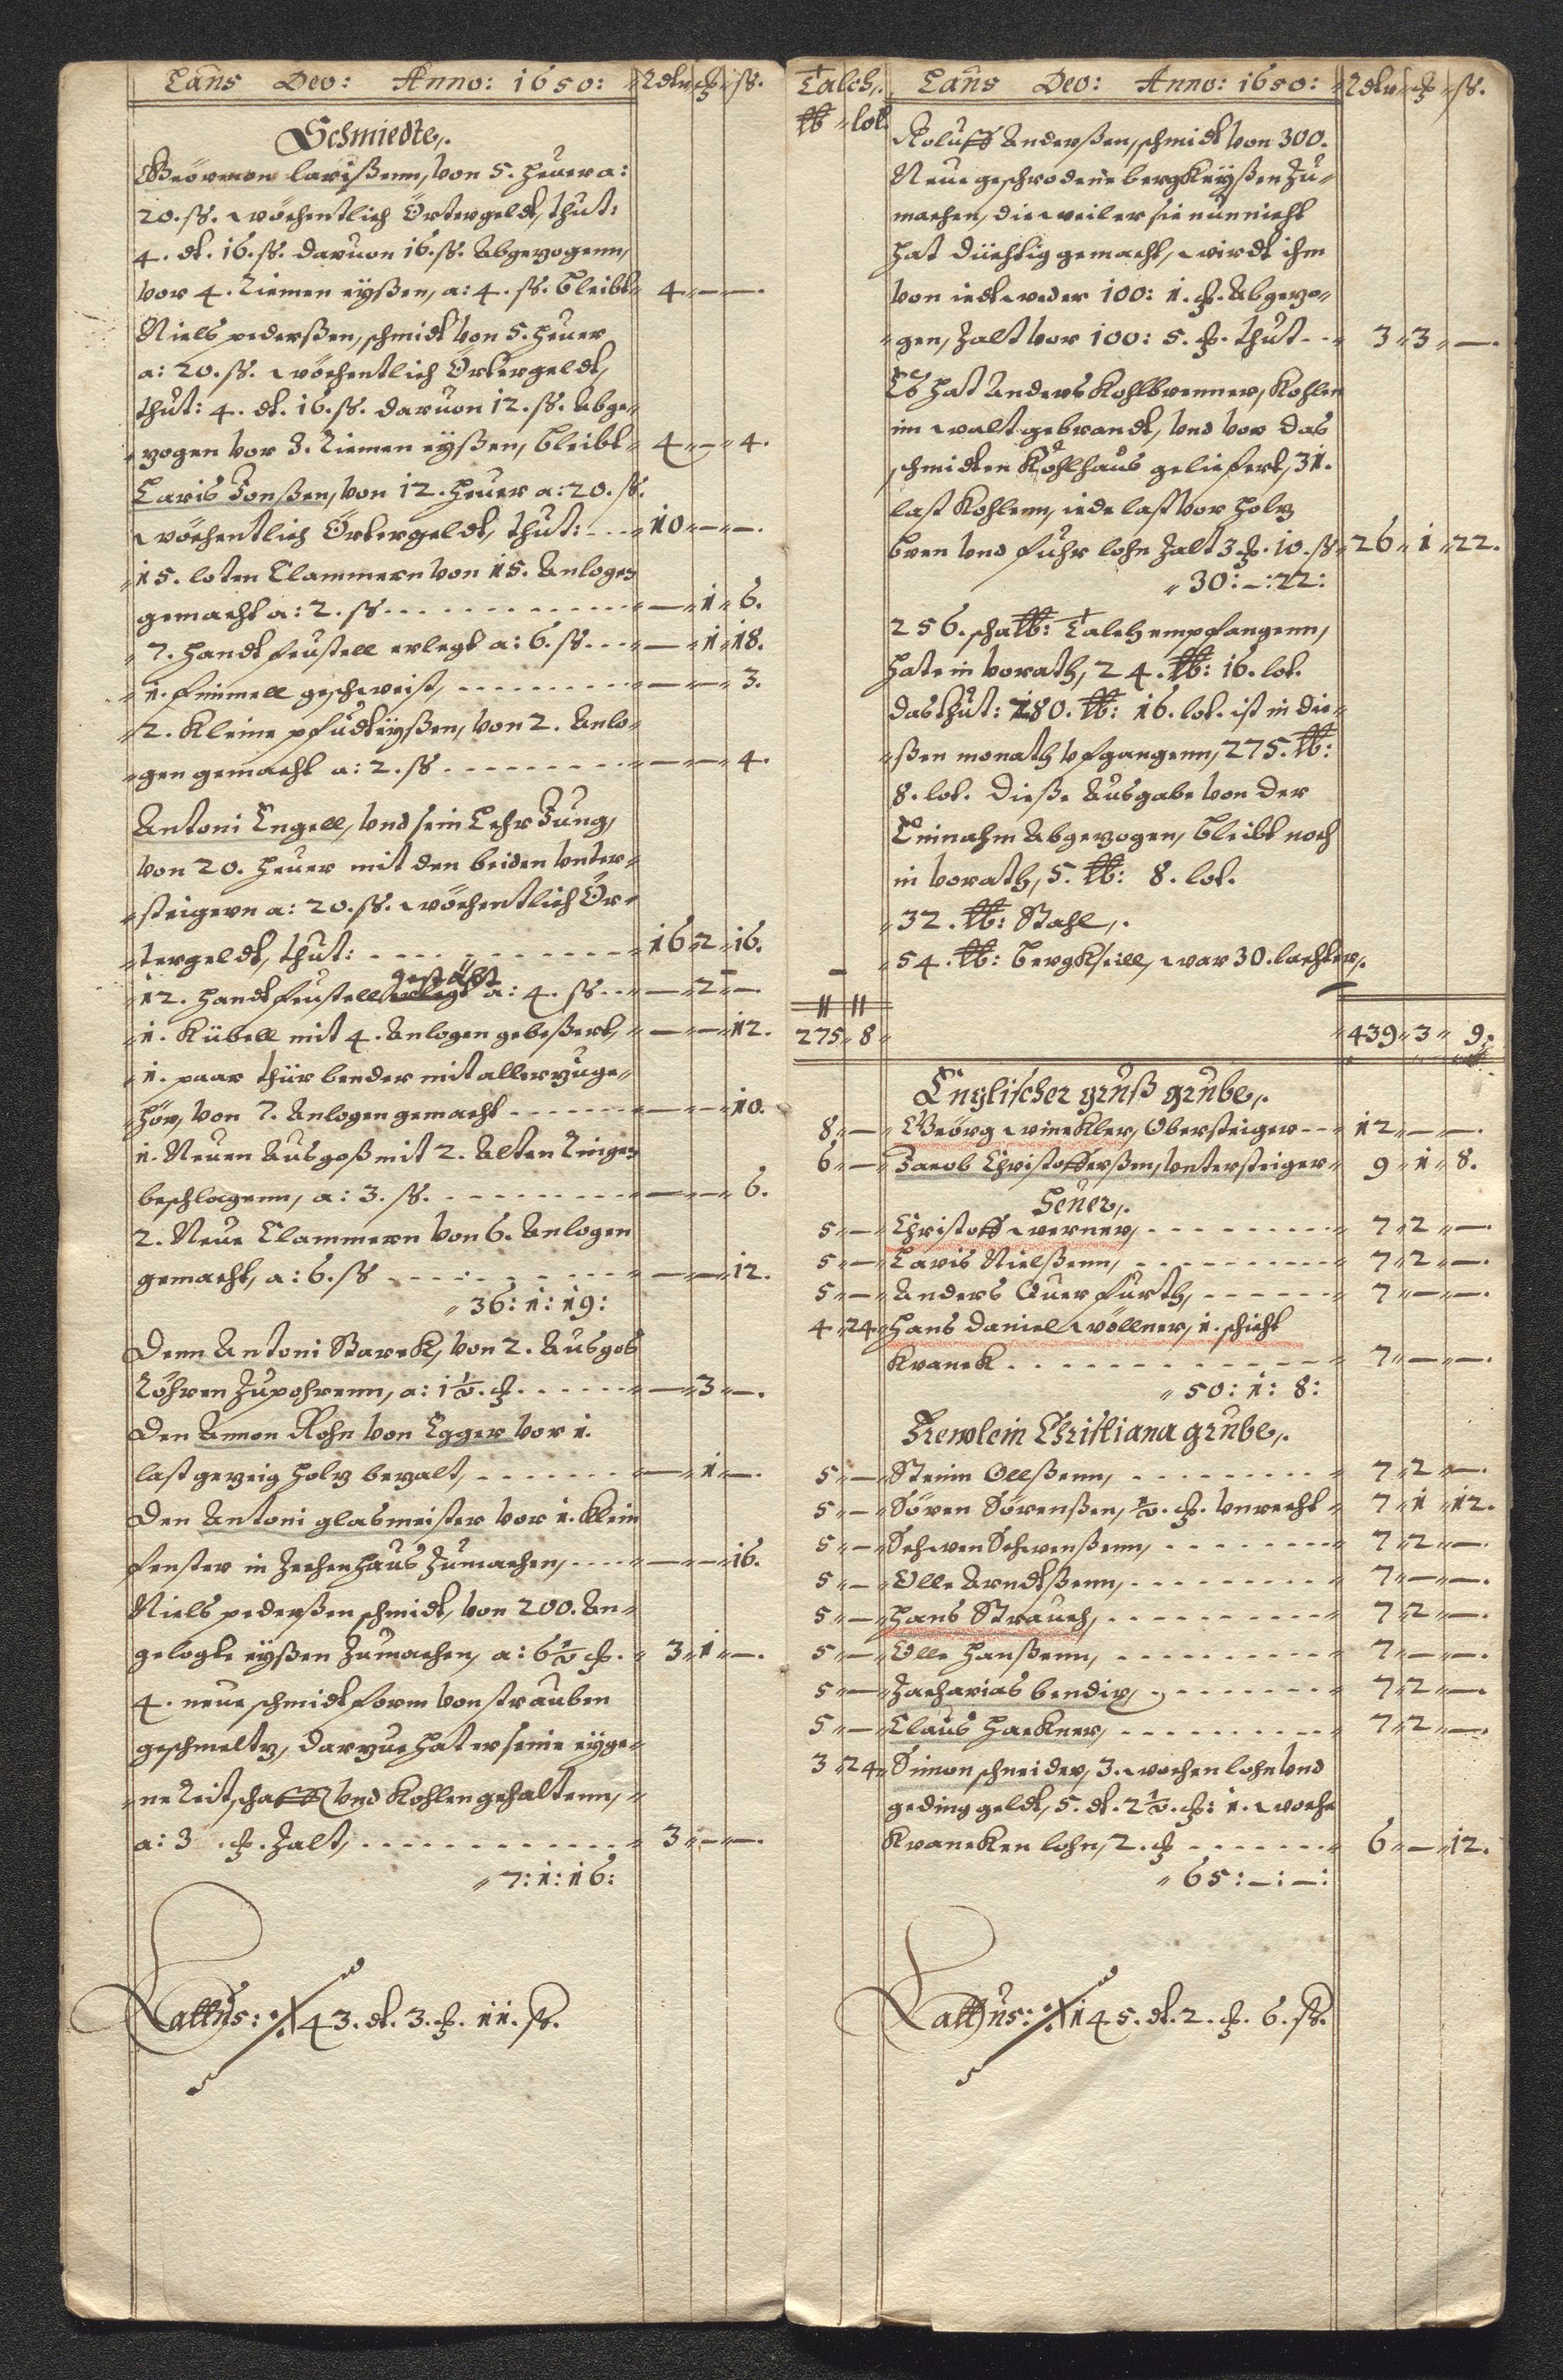 Laus Deo: Anno: 1650: Rdlr ß.
Schmiedte,.
Biörnnon larißenn, von 5. heuer a:
20. ß. wöchentlich Örtergeldt, thut:
4. dl. 16. ß. daruon 16. ß. Abgezogenn,
vor 4. Riemen eyßen, a: 4. ß. bleibt 4 — —.
Niels pederßen, schmidt von 5. heuer
a: 20. ß. wöchentlich Örtergeldt,
thut: 4. dl. 16. ß. daruon 12. ß. Abge„
„zogen vor 3. Riemen eyßen, bleibt 4 — 4.
Laris Jonßen, von 12. heuer a: 20. ß.
wöchentlich Örtergeldt, thut: 10 — —.
15. loten Clammern von 15. Anlogen
gemacht a: 2. ß — 1 6.
7. handt feustell erlegt a: 6. ß. — 1 18.
1. fimmell geschweist, — — 3.
2. Kleine pfudteyßen, von 2. Anlo„
„gen gemacht a: 2. ß — — 4.
Antoni Engell, vnd sein Lehr Jung,
von 20. heuer mit den beiden vnter„
„steigern a: 20. ß. wöchentlich Ör„
„tergeldt, thut: 16 2 16.
gestälst
12. handt feustell erlegt a: 4. ß — 2 —.
1. Kübell mit 4. Anlogen gebeßert, — — 12.
1. paar thür bender mit aller zuge„
„hör, von 7. Anlogen gemacht — — 10.
1. Neuen Ausgoß mit 2. Alten Ringen
beschlagenn, a: 3. ß. — — 6.
2. Neue Clammern von 6. Anlogen
gemacht, a: 6. ß — — 12.
„36: 1: 19:
Denn Antoni Starck, von 2. Ausgos
Röhren zu pohrenn, a: 1½. — 3 —.
Den Amon Rohn von Egger vor 1.
last gezeig holz bezalt, — 1 —.
Den Antoni glasmeister vor 1. klein
fenster in Zechenhaus zumachen, — — 16.
Niels pederßen schmidt, von 200. An„
gelogte eyßen zumachen, a: 6½ 3 1 —.
4. neue schmidt form von strauben
geschmeltz, darzue hat er seine eyge„
„ne Reitschafft vnd Kohlen gehaltenn,
a: 3 . zalt, 3 — —.
„7: 1: 16:
Lattus: 43. dl. 3. 11. ß.
Talch,. Laus Deo: Anno: 1650: Rdlr ß.
℔ lot.
Roluff Anderßen, schmidt von 300.
Neue geschrodene bergkeyßen zu„
machen, dieweil er sie nun nicht
hat düchtig gemacht, wirdt ihm
von iedtweder 100: 1. Abgezo„
„gen, zalt vor 100: 5. thut 3 3 —.
Es hat Anders Kohlbrenner, Kohlen
im walt gebrandt, vnd vor das
schmidten Kohlhaus geliefert, 31.
last Kohlenn, iede last vor holz
bren vnd fuhr lohn zalt 3. 10. ß 26 1 22.
„30: —: 22:
256. scha ℔: Talch empfangenn,
hate in vorath, 24. ℔: 16. lot.
das thut: 280. ℔: 16. lot. ist in die„
„ßen monath vfgangenn, 275. ℔:
8. lot. dieße Ausgabe von der
Einnahm Abgezogen, bleibt noch
in vorath, 5. ℔: 8. lot.
„32. ℔: Stahl,.
„54. ℔: bergkseill, war 30. lachter,.
275 8 439 3 9.
Englischer gruß grube,.
8 — Geörg winckler, Obersteiger 12 — —.
6 — Jacob Christofferßen, vntersteiger 9 1 8.
Heuer,.
5 — Christoff werner, 7 2 —.
5 — Laris Nielßenn, 7 2 —.
5 — Anders Querfurth, 7 — —.
4 24 Hans Daniel wöllner, 1. schicht
kranck 7 — —.
„50: 1: 8:
Frewlein Christiana grube,.
5 — Steinn Ollßenn, 7 2 —.
5 — Sören Sörenßen, ½. vnrecht 7 1 12.
5 — Schwen Schwenßenn, 7 2 —.
5 — Olle Arndtßenn, 7 — —.
5 — Hans Strauch, 7 2 —.
5 — Olle Hanßenn, 7 — —.
5 — Zacharias bendix, 7 2 —.
5 — Claus Hackner, 7 2 —.
3 24 Simon schneider, 3. wochen lohn vnd
geding geldt, 5. dl. 2½. : 1. woche
krancken lohn, 2. 6 — 12.
„65: —: —:
Lattus: 145. dl. 2. 6. ß.